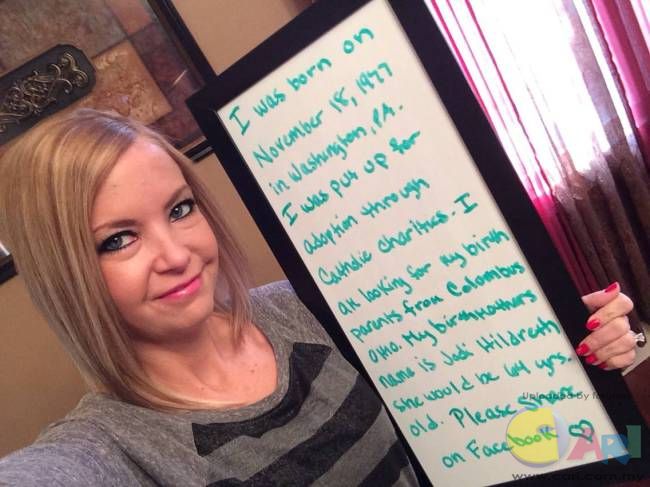 I was born on
November 18, 1977
in Washington, PA.
I was put up for
adoption through
Catholic charities. I
am looking for my birth
parents from Colombus
Ohio. My birth mothers
name is Jodi Hildreth
she would be 64 yrs.
old. Please share
on Facebook ♡
Uploaded by
CARI
www.cari.com.my